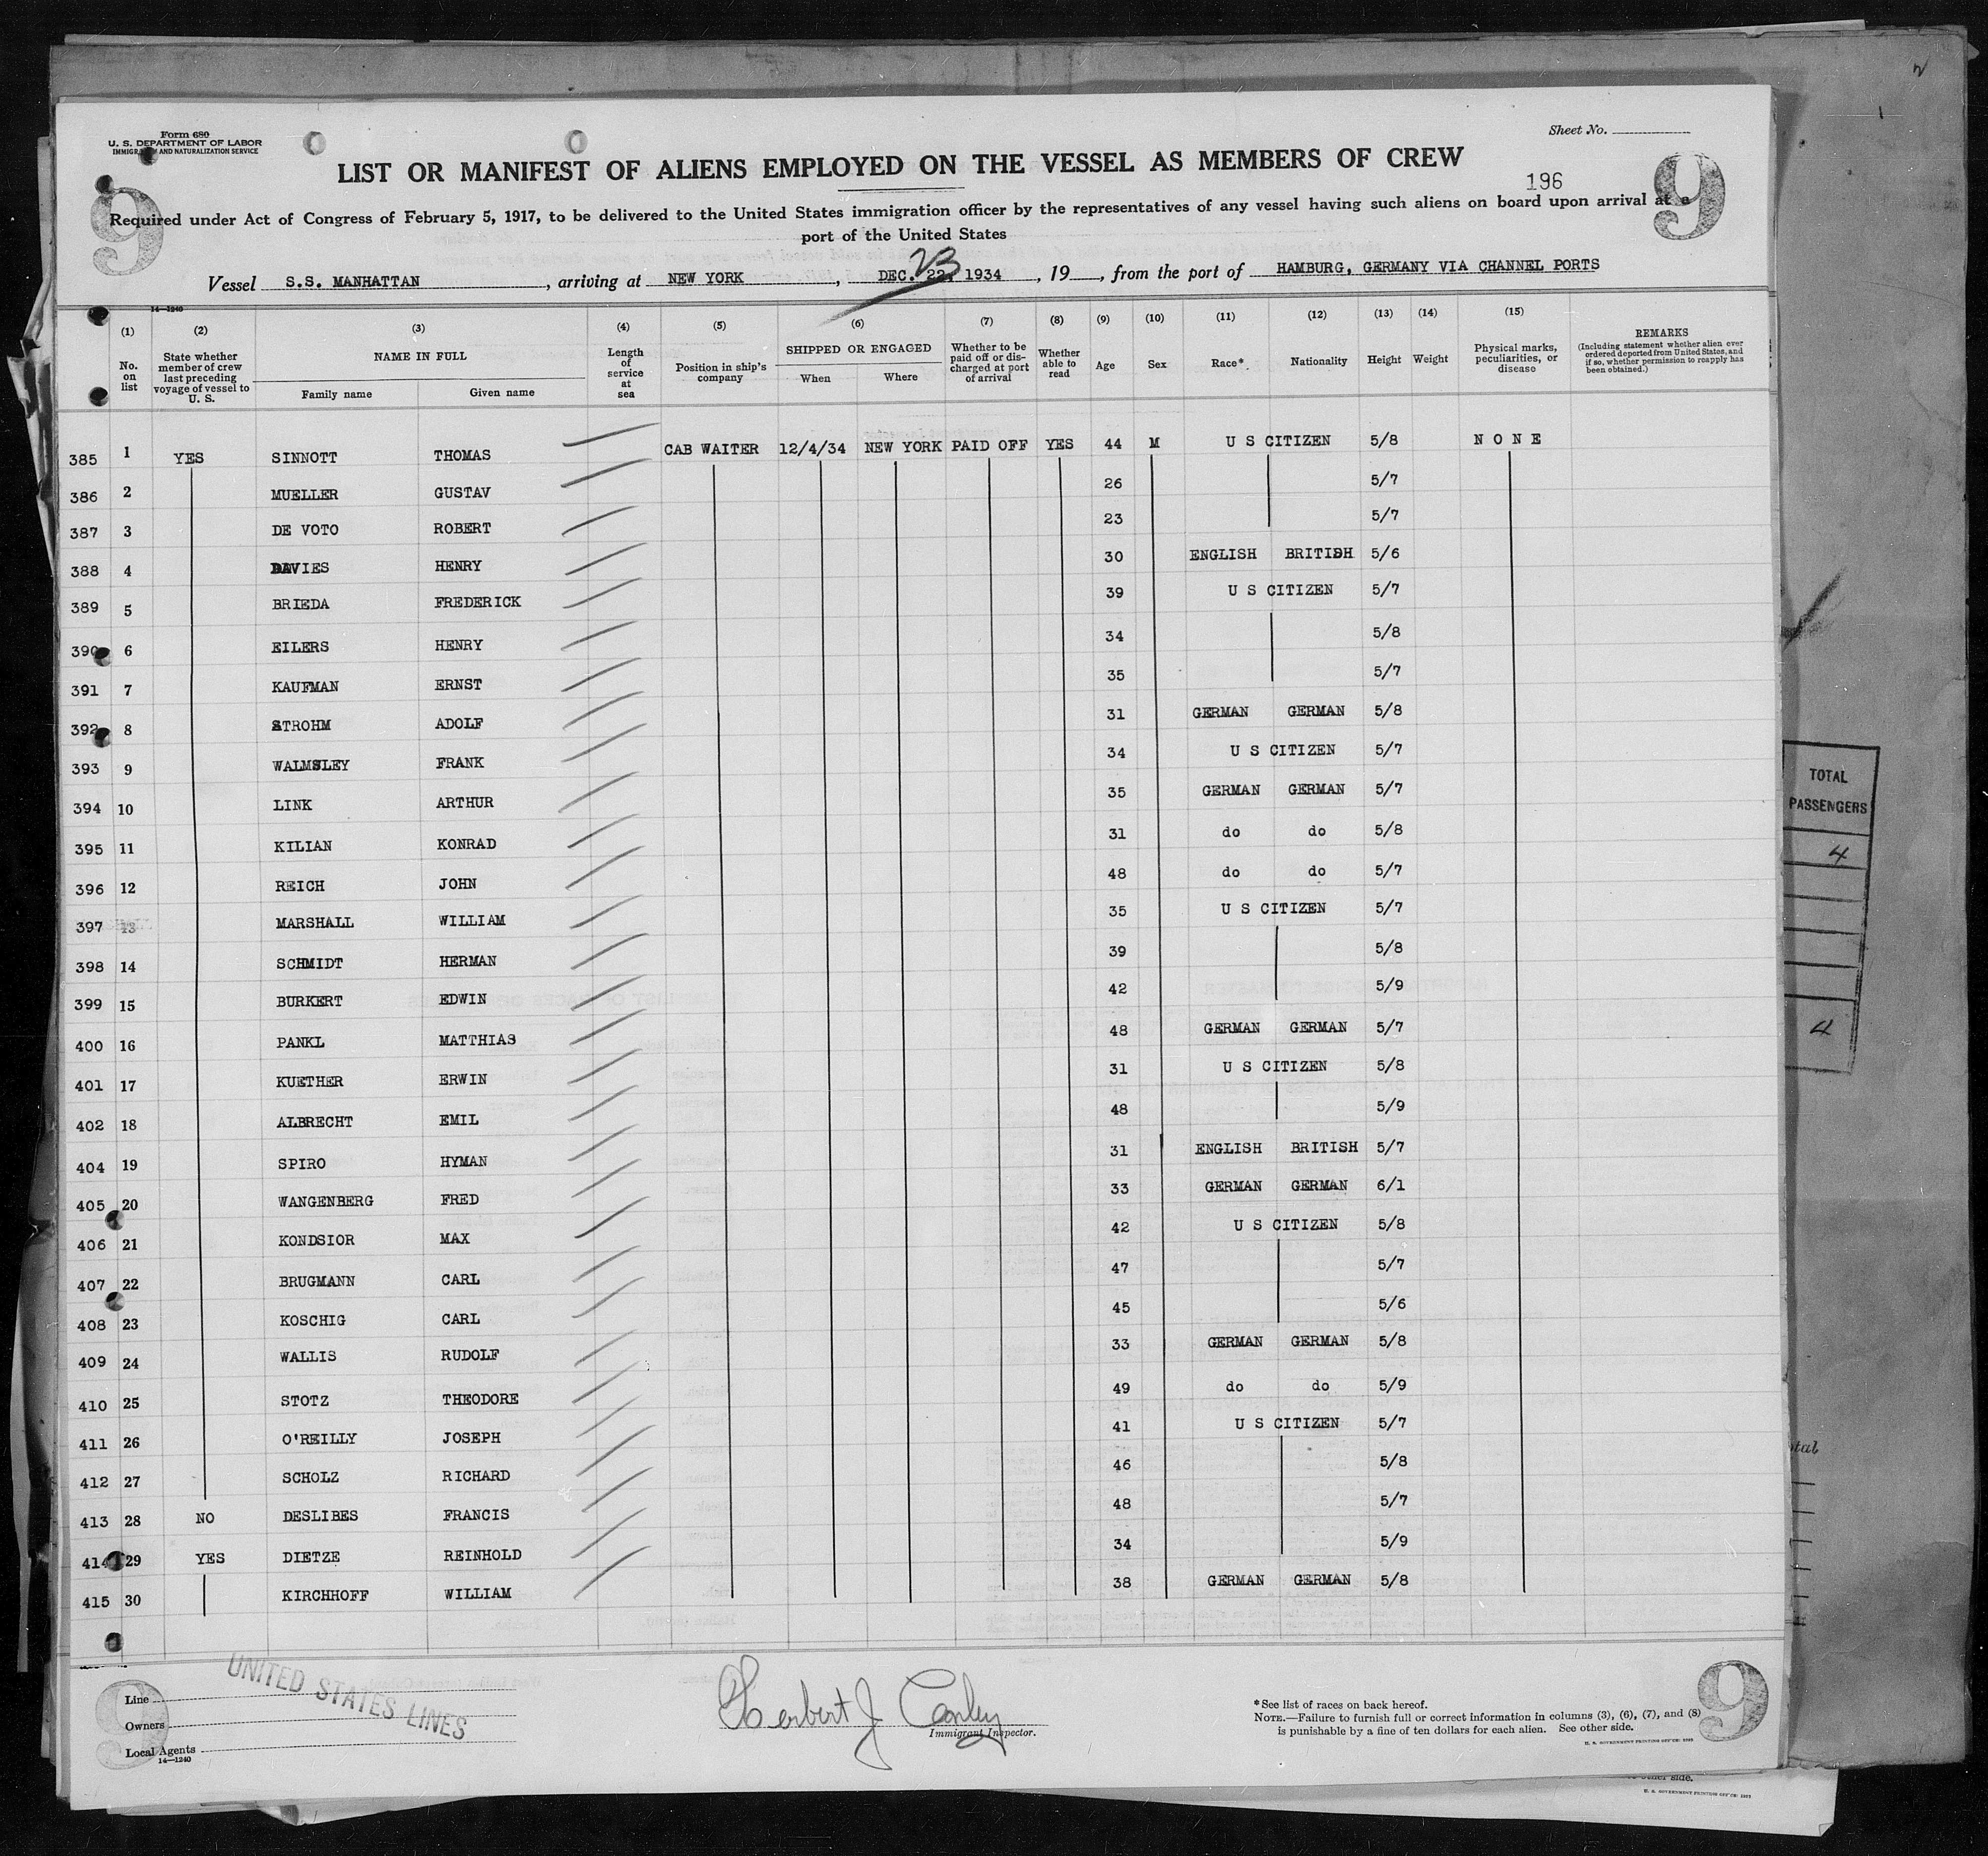 Form 680
U. S. DEPARTMENT OF LABOR
IMMIGRATION AND NATURALIZATION SERVICE
Sheet No.
LIST OR MANIFEST OF ALIENS EMPLOYED ON THE VESSEL AS MEMBERS OF CREW
9 196 9
Required under Act of Congress of February 5, 1917, to be delivered to the United States immigration officer by the representatives of any vessel having such aliens on board upon arrival at a
port of the United States
23
Vessel S.S. MANHATTAN, arriving at NEW YORK, DEC. 22, 1934, 19, from the port of HAMBURG, GERMANY VIA CHANNEL PORTS
14—1240
(1) (2) (3) (4) (5) (6) (7) (8) (9) (10) (11) (12) (13) (14) (15)
No. on list
State whether member of crew last preceding voyage of vessel to U. S.
NAME IN FULL
Family name Given name
Length of service at sea
Position in ship's company
SHIPPED OR ENGAGED
When Where
Whether to be paid off or discharged at port of arrival
Whether able to read
Age Sex Race* Nationality Height Weight
Physical marks, peculiarities, or disease
REMARKS
(Including statement whether alien ever ordered deported from United States, and if so, whether permission to reapply has been obtained.)
385 1 YES SINNOTT THOMAS CAB WAITER 12/4/34 NEW YORK PAID OFF YES 44 M U S CITIZEN 5/8 NONE
386 2 MUELLER GUSTAV 26 5/7
387 3 DE VOTO ROBERT 23 5/7
388 4 DAVIES HENRY 30 ENGLISH BRITISH 5/6
389 5 BRIEDA FREDERICK 39 U S CITIZEN 5/7
390 6 EILERS HENRY 34 5/8
391 7 KAUFMAN ERNST 35 5/7
392 8 STROHM ADOLF 31 GERMAN GERMAN 5/8
393 9 WALMSLEY FRANK 34 U S CITIZEN 5/7
394 10 LINK ARTHUR 35 GERMAN GERMAN 5/7
395 11 KILIAN KONRAD 31 do do 5/8
396 12 REICH JOHN 48 do do 5/7
397 13 MARSHALL WILLIAM 35 U S CITIZEN 5/7
398 14 SCHMIDT HERMAN 39 5/8
399 15 BURKERT EDWIN 42 5/9
400 16 PANKL MATTHIAS 48 GERMAN GERMAN 5/7
401 17 KUETHER ERWIN 31 U S CITIZEN 5/8
402 18 ALBRECHT EMIL 48 5/9
404 19 SPIRO HYMAN 31 ENGLISH BRITISH 5/7
405 20 WANGENBERG FRED 33 GERMAN GERMAN 6/1
406 21 KONDSIOR MAX 42 U S CITIZEN 5/8
407 22 BRUGMANN CARL 47 5/7
408 23 KOSCHIG CARL 45 5/6
409 24 WALLIS RUDOLF 33 GERMAN GERMAN 5/8
410 25 STOTZ THEODORE 49 do do 5/9
411 26 O'REILLY JOSEPH 41 U S CITIZEN 5/7
412 27 SCHOLZ RICHARD 46 5/8
413 28 NO DESLIBES FRANCIS 48 5/7
414 29 YES DIETZE REINHOLD 34 5/9
415 30 KIRCHHOFF WILLIAM 38 GERMAN GERMAN 5/8
TOTAL
PASSENGERS
4
4
9 9
Line
Owners
Local Agents
14—1240
UNITED STATES LINES
Herbert J Conley
Immigrant Inspector.
*See list of races on back hereof.
NOTE.—Failure to furnish full or correct information in columns (3), (6), (7), and (8)
is punishable by a fine of ten dollars for each alien. See other side.
U. S. GOVERNMENT PRINTING OFFICE
other side.
U. S. GOVERNMENT PRINTING OFFICE